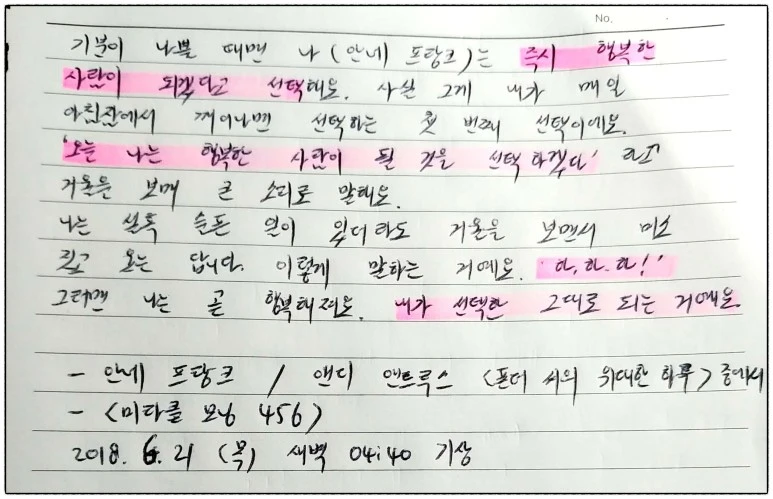 No.
기분이 나쁠 때면 나(안네 프랑크)는 즉시 행복한
사람이 되겠다고 선택해요. 사실 그게 내가 매일
아침잠에서 깨어나면 선택하는 첫 번째 선택이에요.
'오늘 나는 행복한 사람이 될 것을 선택하겠다' 라고
거울을 보며 큰 소리로 말해요.
나는 설혹 슬픈 일이 있더라도 거울을 보면서 미소
짓고 웃는 답니다. 이렇게 말하는 거예요. '하, 하, 하!'
그러면 나는 곧 행복해져요. 내가 선택한 그대로 되는 거예요.
- 안네 프랑크 / 앤디 앤드루스 <폰더 씨의 위대한 하루> 중에서
- <미라클 모닝 456>
2018. 6. 21 (목) 새벽 04:40 기상